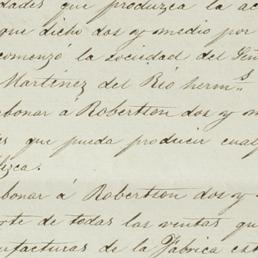 dades que produzca la ac
que dicho dos y medio por
comenzó la sociedad del Señ
Martinez del Rio herm.s
abonar á Robertson dos y m
es que pueda producir cual
liza.
bonar á Robertson dos y
rte de todas las ventas qu
ufacturas de la Fabrica est